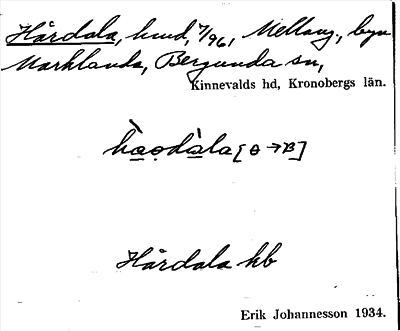 Hårdala, hmd, 7/96, Mellang., byn
Marklanda, Bergunda sn,
Kinnevalds hd, Kronobergs län.
hàodàla [ɵ → B]
Hårdala hb
Erik Johannesson 1934.